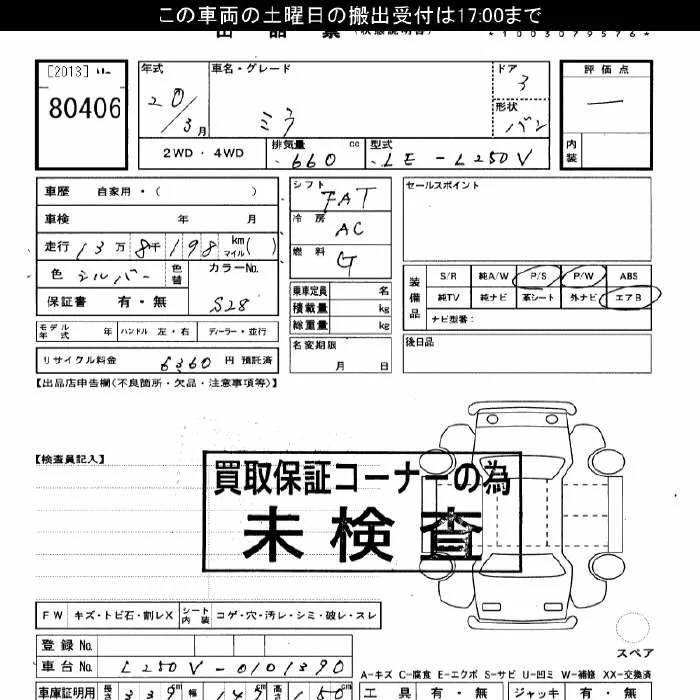 この車両の土曜日の搬出受付は17:00まで
出品票 (状態説明書)
*1003079576*
[2013]
80406
年式
20/3月
車名・グレード
ミラ
ドア
3
形状
バン
評価点
―
内装
2WD・4WD
排気量 660 cc
型式 LE-L250V
車歴 自家用・( )
車検 年 月
走行 13万8千198 km マイル( )
色 シルバー 色替
カラーNo. S28
保証書 有・無
シフト FAT
冷房 AC
燃料 G
乗車定員 名
積載量 kg
総重量 kg
名変期限 月 日
セールスポイント
装備品
S/R 純A/W P/S P/W ABS
純TV 純ナビ 革シート 外ナビ エアB
ナビ型番:
後日品
モデル年式 年 ハンドル 左・右 ディーラー・並行
リサイクル料金 6360 円 預託済
【出品店申告欄(不良箇所・欠品・注意事項等)】
【検査員記入】
買取保証コーナーの為
未検査
FW キズ・トビ石・割レX シート内装 コゲ・穴・汚レ・シミ・破レ・スレ
登録No.
車台No. L250V-0101390
スペア
A-キズ C-腐食 E-エクボ S-サビ U-凹ミ W-補修 XX-交換済
車庫証明用 長さ 339cm 幅 147cm 高さ 150cm
工具 有・無 ジャッキ 有・無